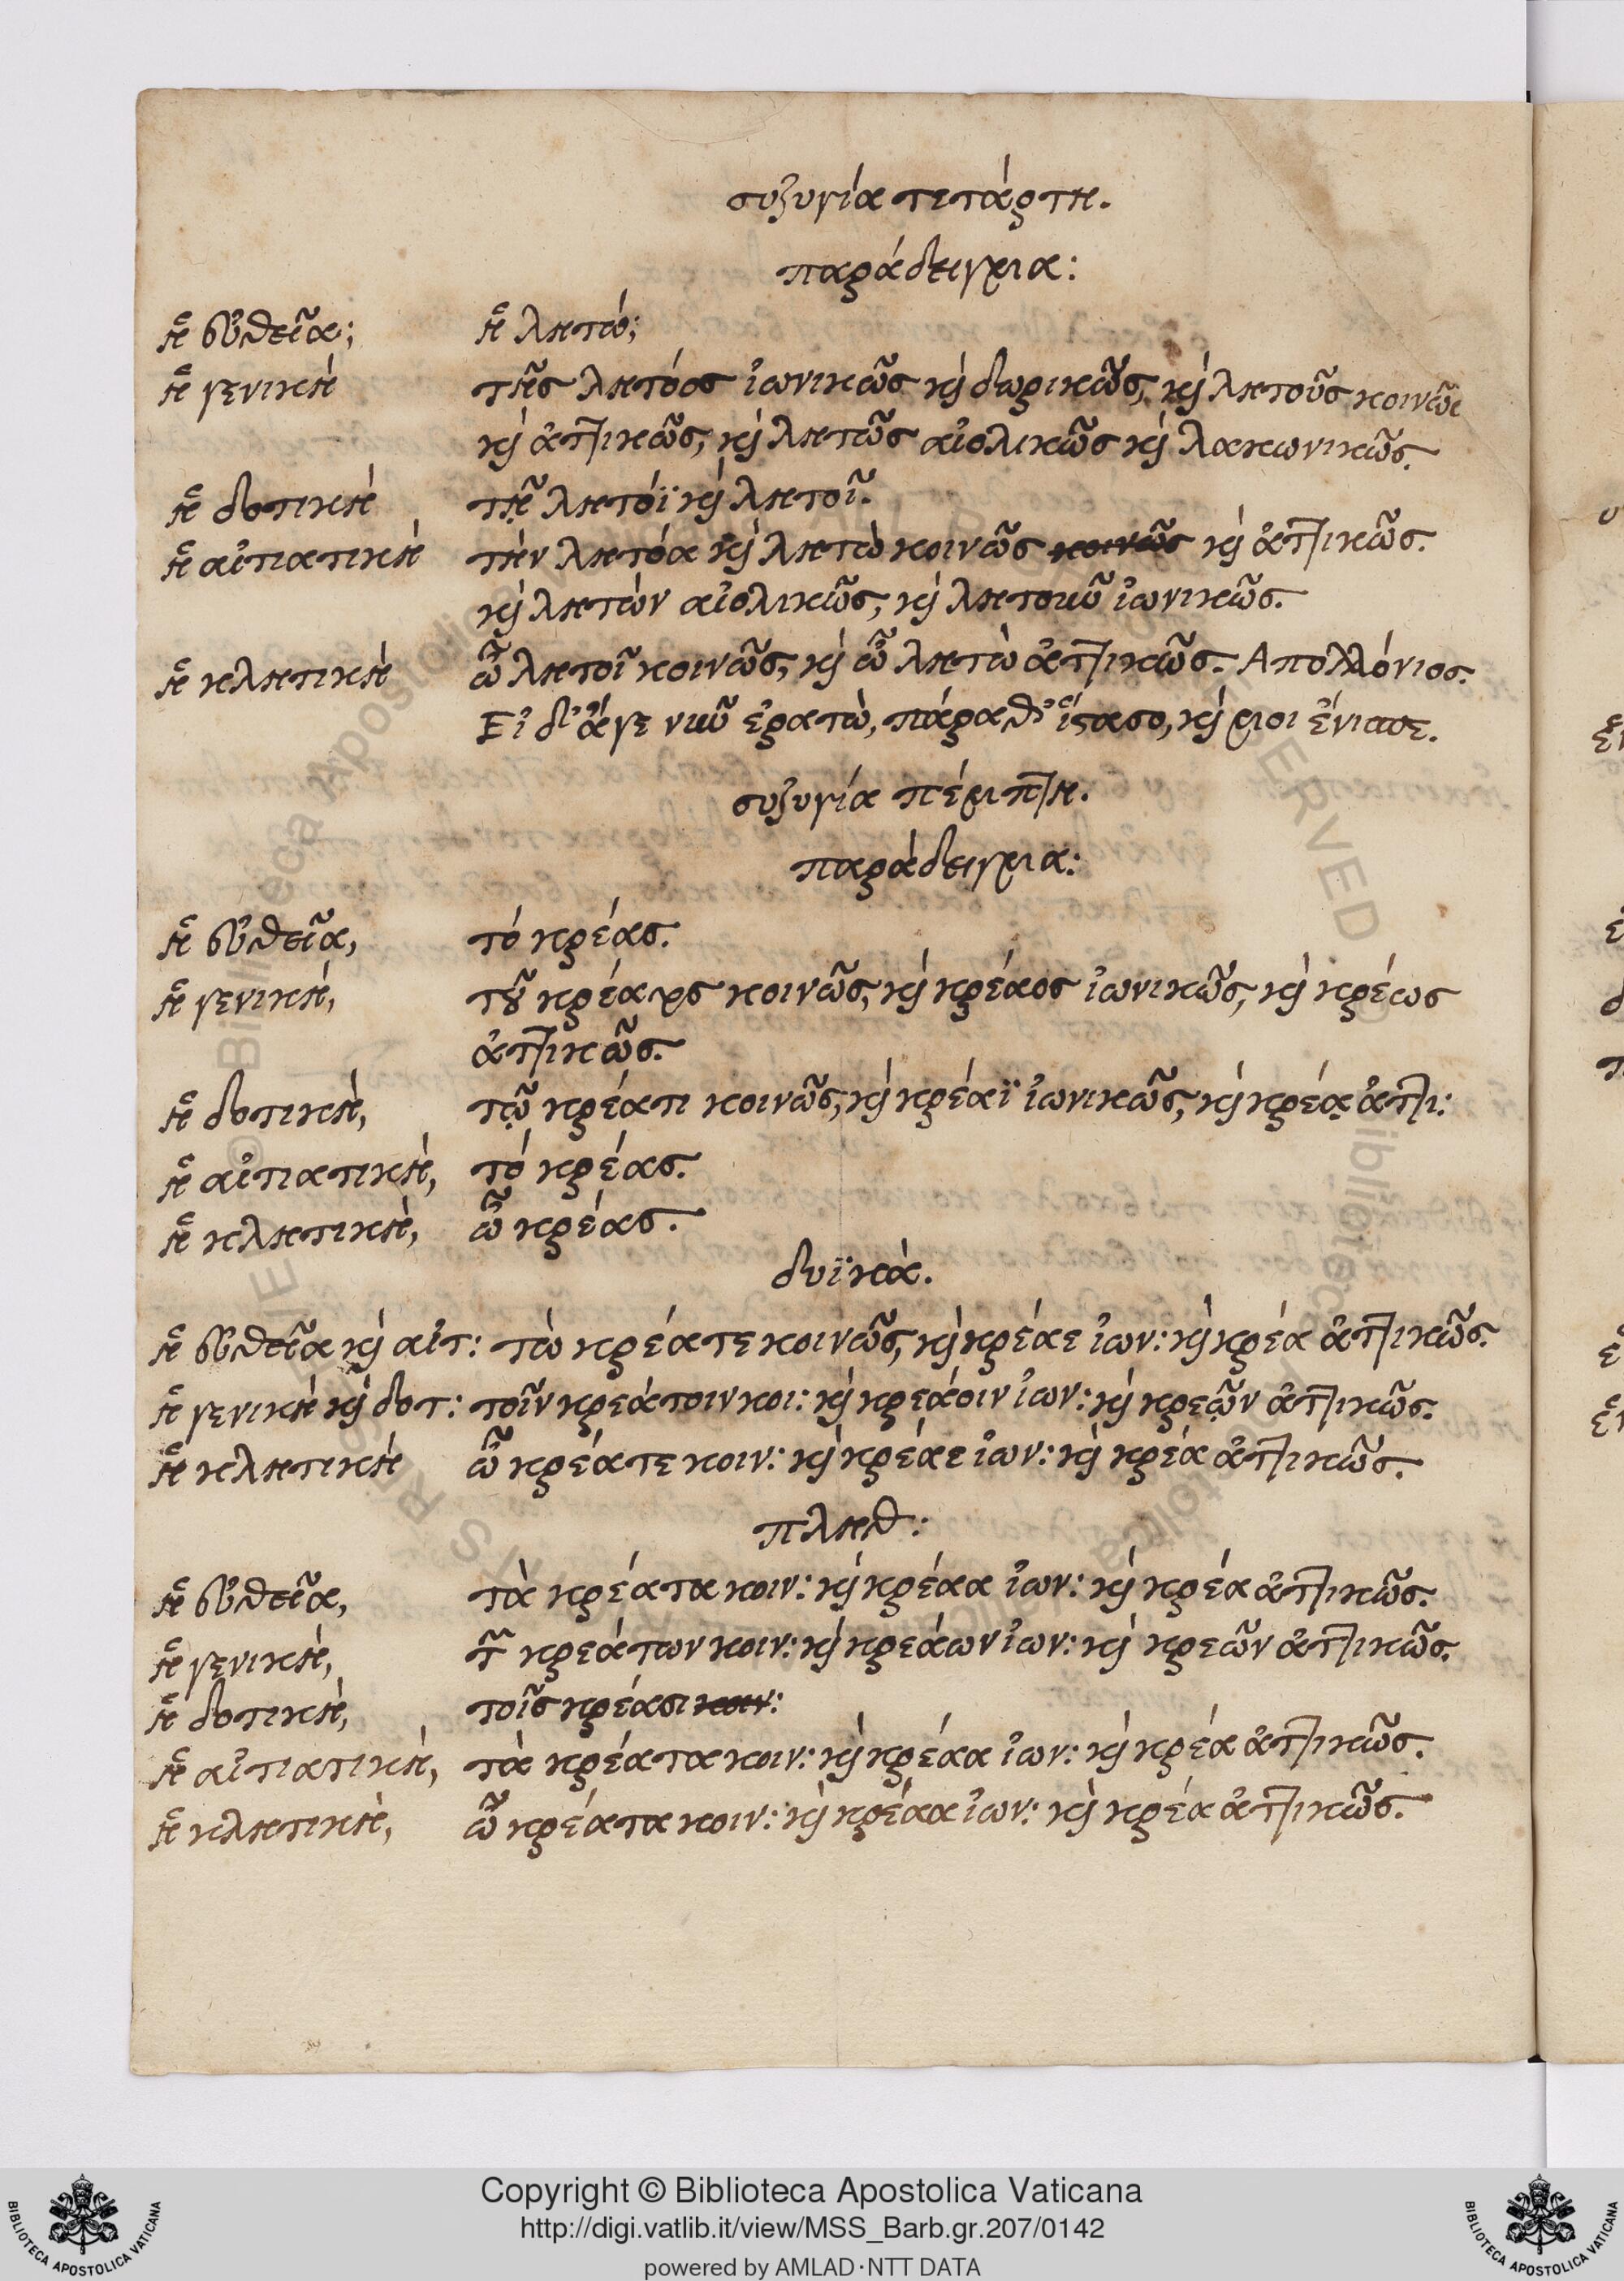 συζυγία τετάρτη.
παράδειγμα:
ἡ εὐθεῖα; ἡ λητώ;
ἡ γενικὴ τῆς λητόος ἰωνικῶς καὶ δωρικῶς, καὶ λητοῦς κοινῶς
καὶ ἀττικῶς, καὶ λητῶς αἰολικῶς καὶ λακωνικῶς.
ἡ δοτικὴ τῇ λητόϊ καὶ λητοῖ.
ἡ αἰτιατικὴ τὴν λητόα καὶ λητὼ κοινῶς κοινῶς καὶ ἀττικῶς.
καὶ λητών αἰολικῶς, καὶ λητοῦν ἰωνικῶς.
ἡ κλητικὴ ὦ λητοῖ κοινῶς, καὶ ὦ λητὼ ἀττικῶς. Απολλόνιος.
Εἰ δ' ἄγε νῦν ἐρατὼ, πάραθ' ἵστασο, καί μοι ἔνισπε.
συζυγία πέμπτη.
παράδειγμα:
ἡ εὐθεῖα, τό κρέας.
ἡ γενικὴ, τοῦ κρέατος κοινῶς, καὶ κρέαος ἰωνικῶς, καὶ κρέως
ἀττικῶς.
ἡ δοτικὴ, τῷ κρέατι κοινῶς, καὶ κρέαϊ ἰωνικῶς, καὶ κρέᾳ ἀττι:
ἡ αἰτιατικὴ, τό κρέας.
ἡ κλητικὴ, ὦ κρέας.
δυϊκὰ.
ἡ εὐθεῖα καὶ αἰτ: τὼ κρέατε κοινῶς, καὶ κρέαε ἰων: καὶ κρέα ἀττικῶς.
ἡ γενικὴ καὶ δοτ: τοῖν κρεάτοιν κοι: καὶ κρεάοιν ἰων: καὶ κρεῷν ἀττικῶς.
ἡ κλητικὴ ὦ κρέατε κοιν: καὶ κρέαε ἰων: καὶ κρέα ἀττικῶς.
πληθ:
ἡ εὐθεῖα, τὰ κρέατα κοιν: καὶ κρέαα ἰων: καὶ κρέα ἀττικῶς.
ἡ γενικὴ, τῶν κρεάτων κοιν: καὶ κρεάων ἰων: καὶ κρεῶν ἀττικῶς.
ἡ δοτικὴ, τοῖς κρέασι κοιν:
ἡ αἰτιατικὴ, τὰ κρέατα κοιν: καὶ κρέαα ἰων: καὶ κρέα ἀττικῶς.
ἡ κλητικὴ, ὦ κρέατα κοιν: καὶ κρέαα ἰων: καὶ κρέα ἀττικῶς.
Copyright © Biblioteca Apostolica Vaticana
http://digi.vatlib.it/view/MSS_Barb.gr.207/0142
powered by AMLAD·NTT DATA
BIBLIOTECA APOSTOLICA VATICANA
BIBLIOTECA APOSTOLICA VATICANA